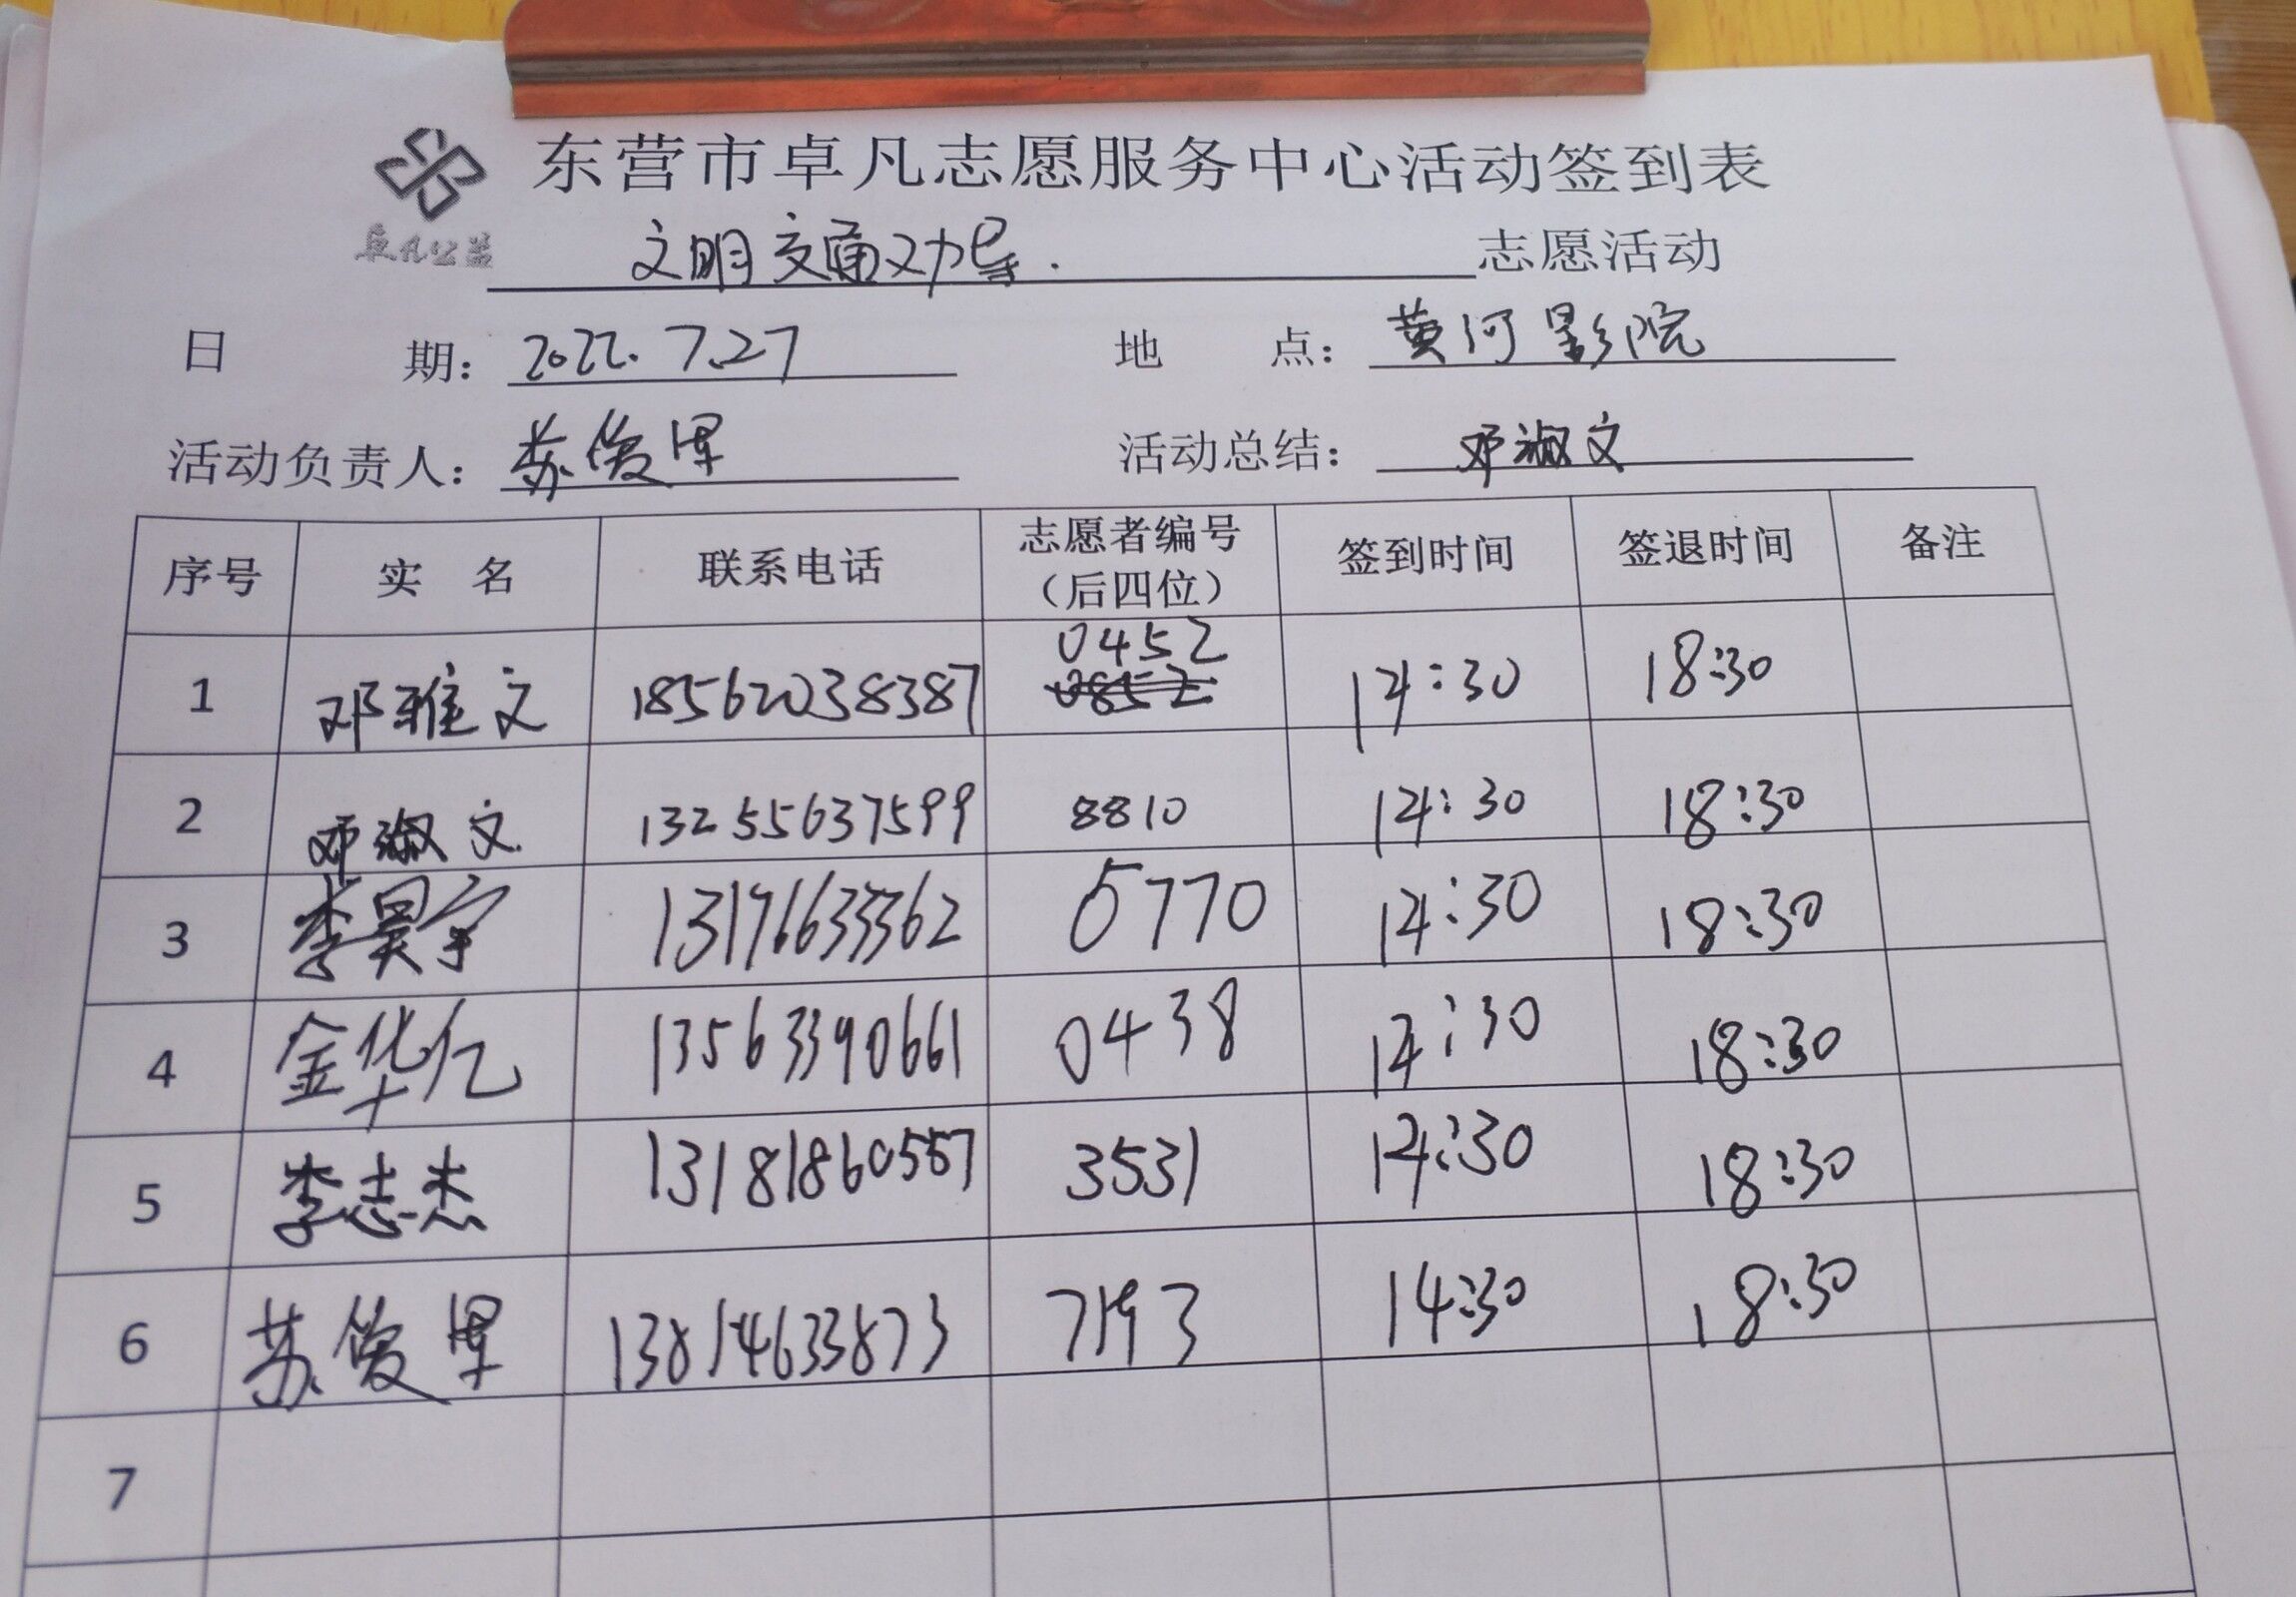 东营市卓凡志愿服务中心活动签到表
卓凡公益
文明交通劝导. 志愿活动
日 期: 2022.7.27 地 点: 黄河影院
活动负责人: 苏俊军 活动总结: 邓淑文
序号 实 名 联系电话 志愿者编号（后四位） 签到时间 签退时间 备注
0452
1 邓雅文 18562038387 0852 14:30 18:30
2 邓淑文 13255637599 8810 14:30 18:30
3 李昊宇 13176633362 5770 14:30 18:30
4 金华亿 13563390661 0438 14:30 18:30
5 李志杰 13181860557 3531 14:30 18:30
6 苏俊军 13814633873 7193 14:30 18:30
7